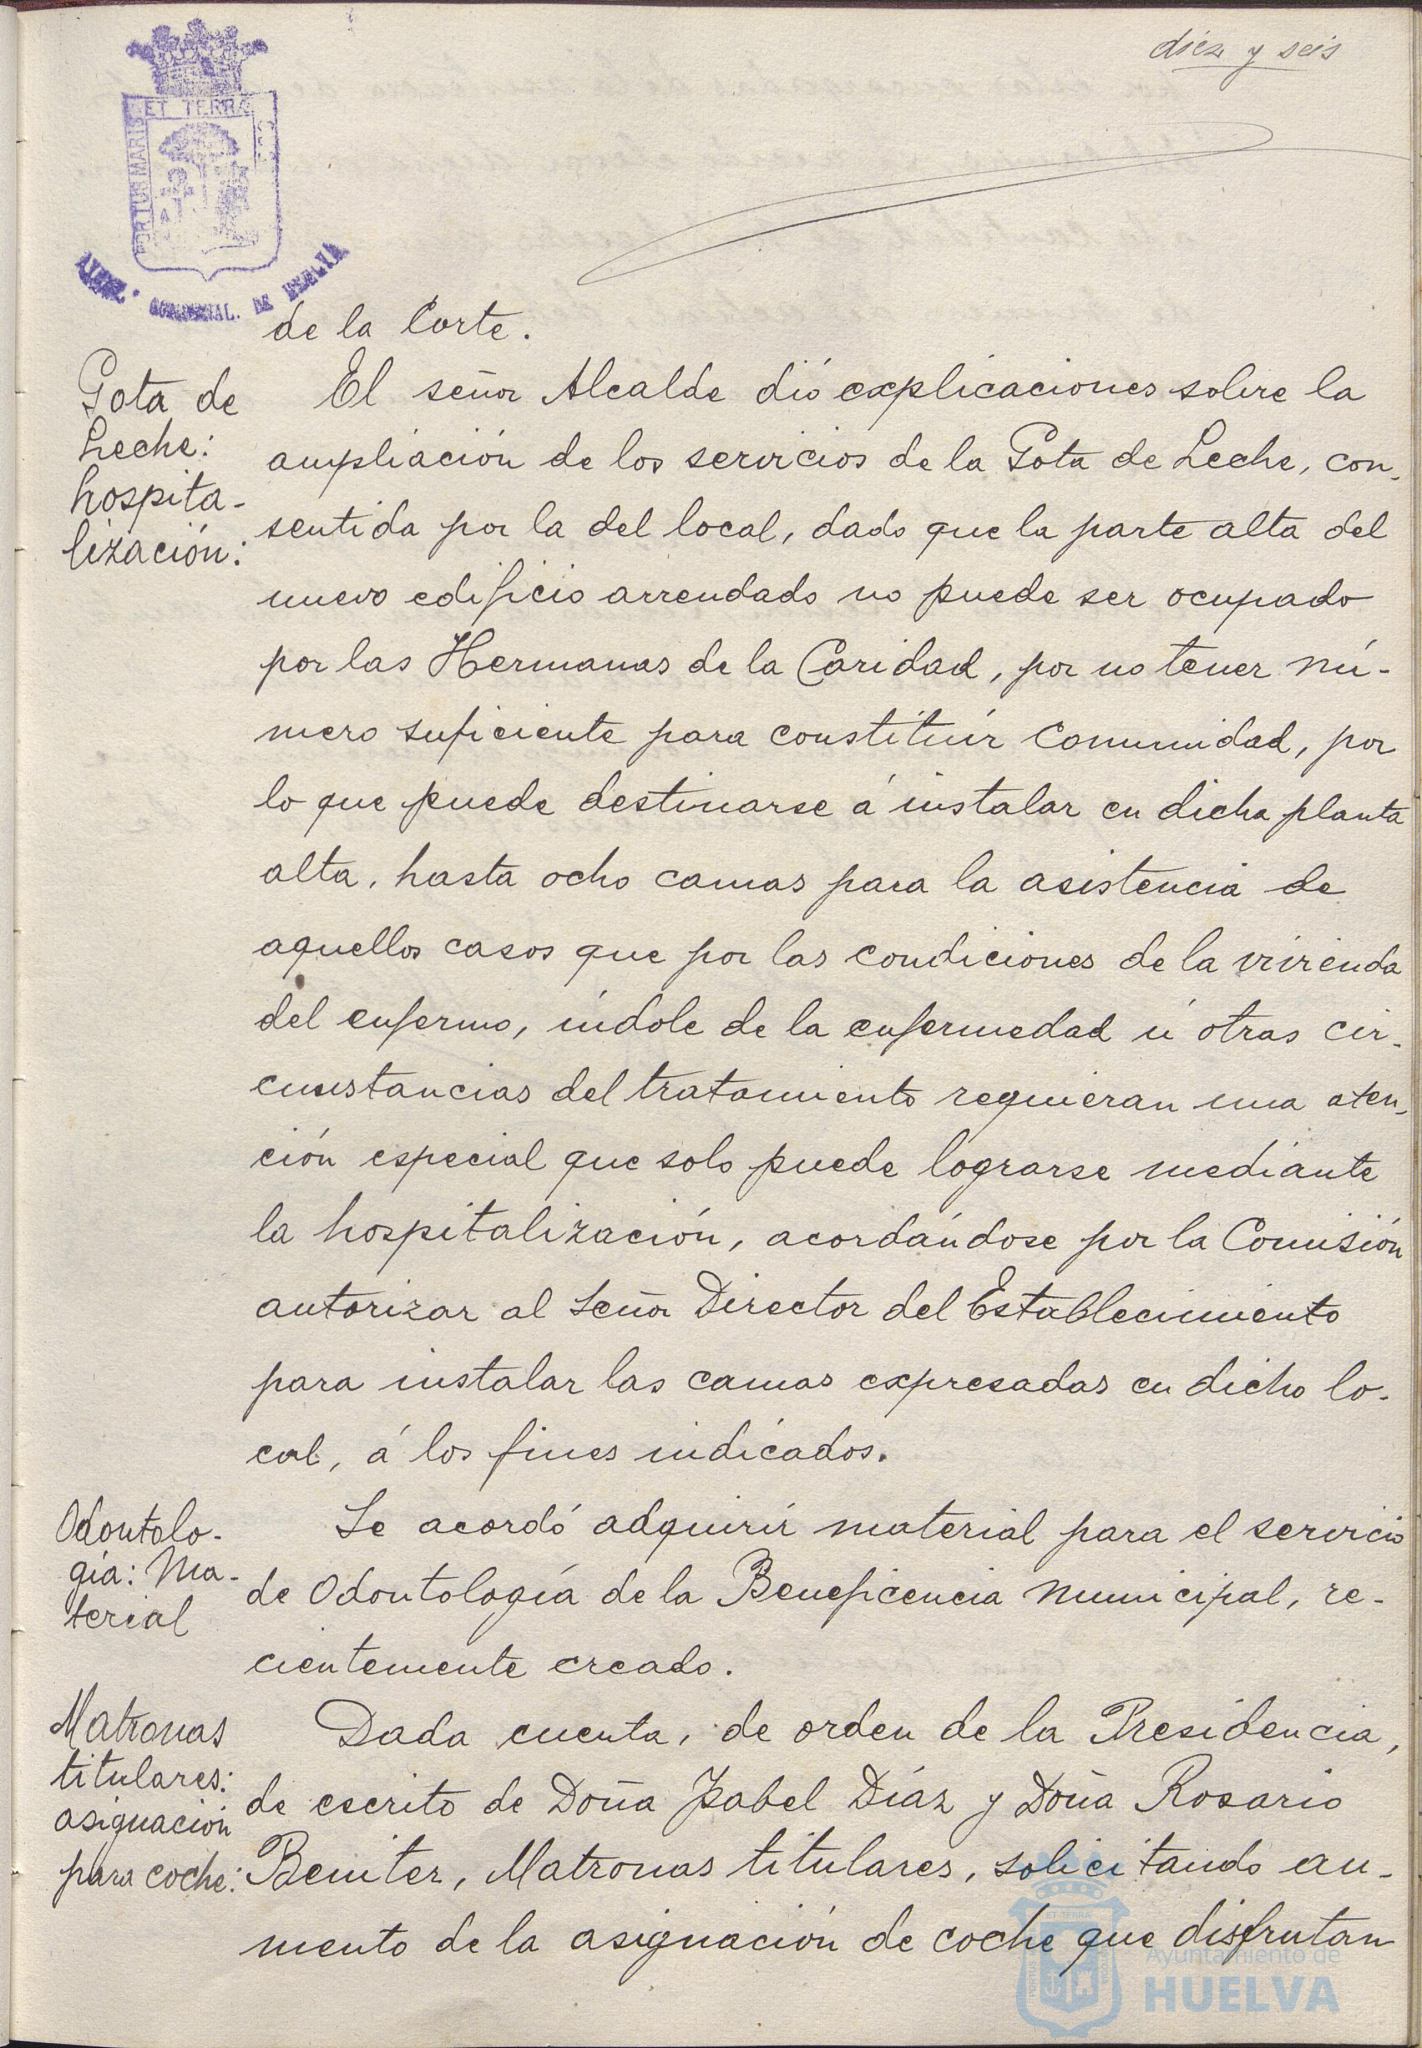 diez y seis
PORTUS MARIS ET TERRÆ CUS
AYUNT. CONSTITUCIONAL. DE HUELVA
de la Corte.
Gota de
Leche:
hospita-
lización:
El señor Alcalde dió explicaciones sobre la
ampliación de los servicios de la Gota de Leche, con-
sentida por la del local, dado que la parte alta del
nuevo edificio arrendado no puede ser ocupado
por las Hermanas de la Caridad, por no tener nú-
mero suficiente para constituír Comunidad, por
lo que puede destinarse á instalar en dicha planta
alta, hasta ocho camas para la asistencia de
aquellos casos que por las condiciones de la vivienda
del enfermo, índole de la enfermedad ú otras cir-
cunstancias del tratamiento requieran una aten-
ción especial que solo puede lograrse mediante
la hospitalización, acordándose por la Comisión
autorizar al Señor Director del Establecimiento
para instalar las camas expresadas en dicho lo-
cal, á los fines indicados.
Odontolo-
gía: Ma-
terial
Se acordó adquirir material para el servicio
de Odontología de la Beneficencia Municipal, re-
cientemente creado.
Matronas
titulares:
asignación
para coche:
Dada cuenta, de orden de la Presidencia,
de escrito de Doña Isabel Díaz y Doña Rosario
Benitez, Matronas titulares, solicitando au-
mento de la asignación de coche que disfrutan
Ayuntamiento de
HUELVA